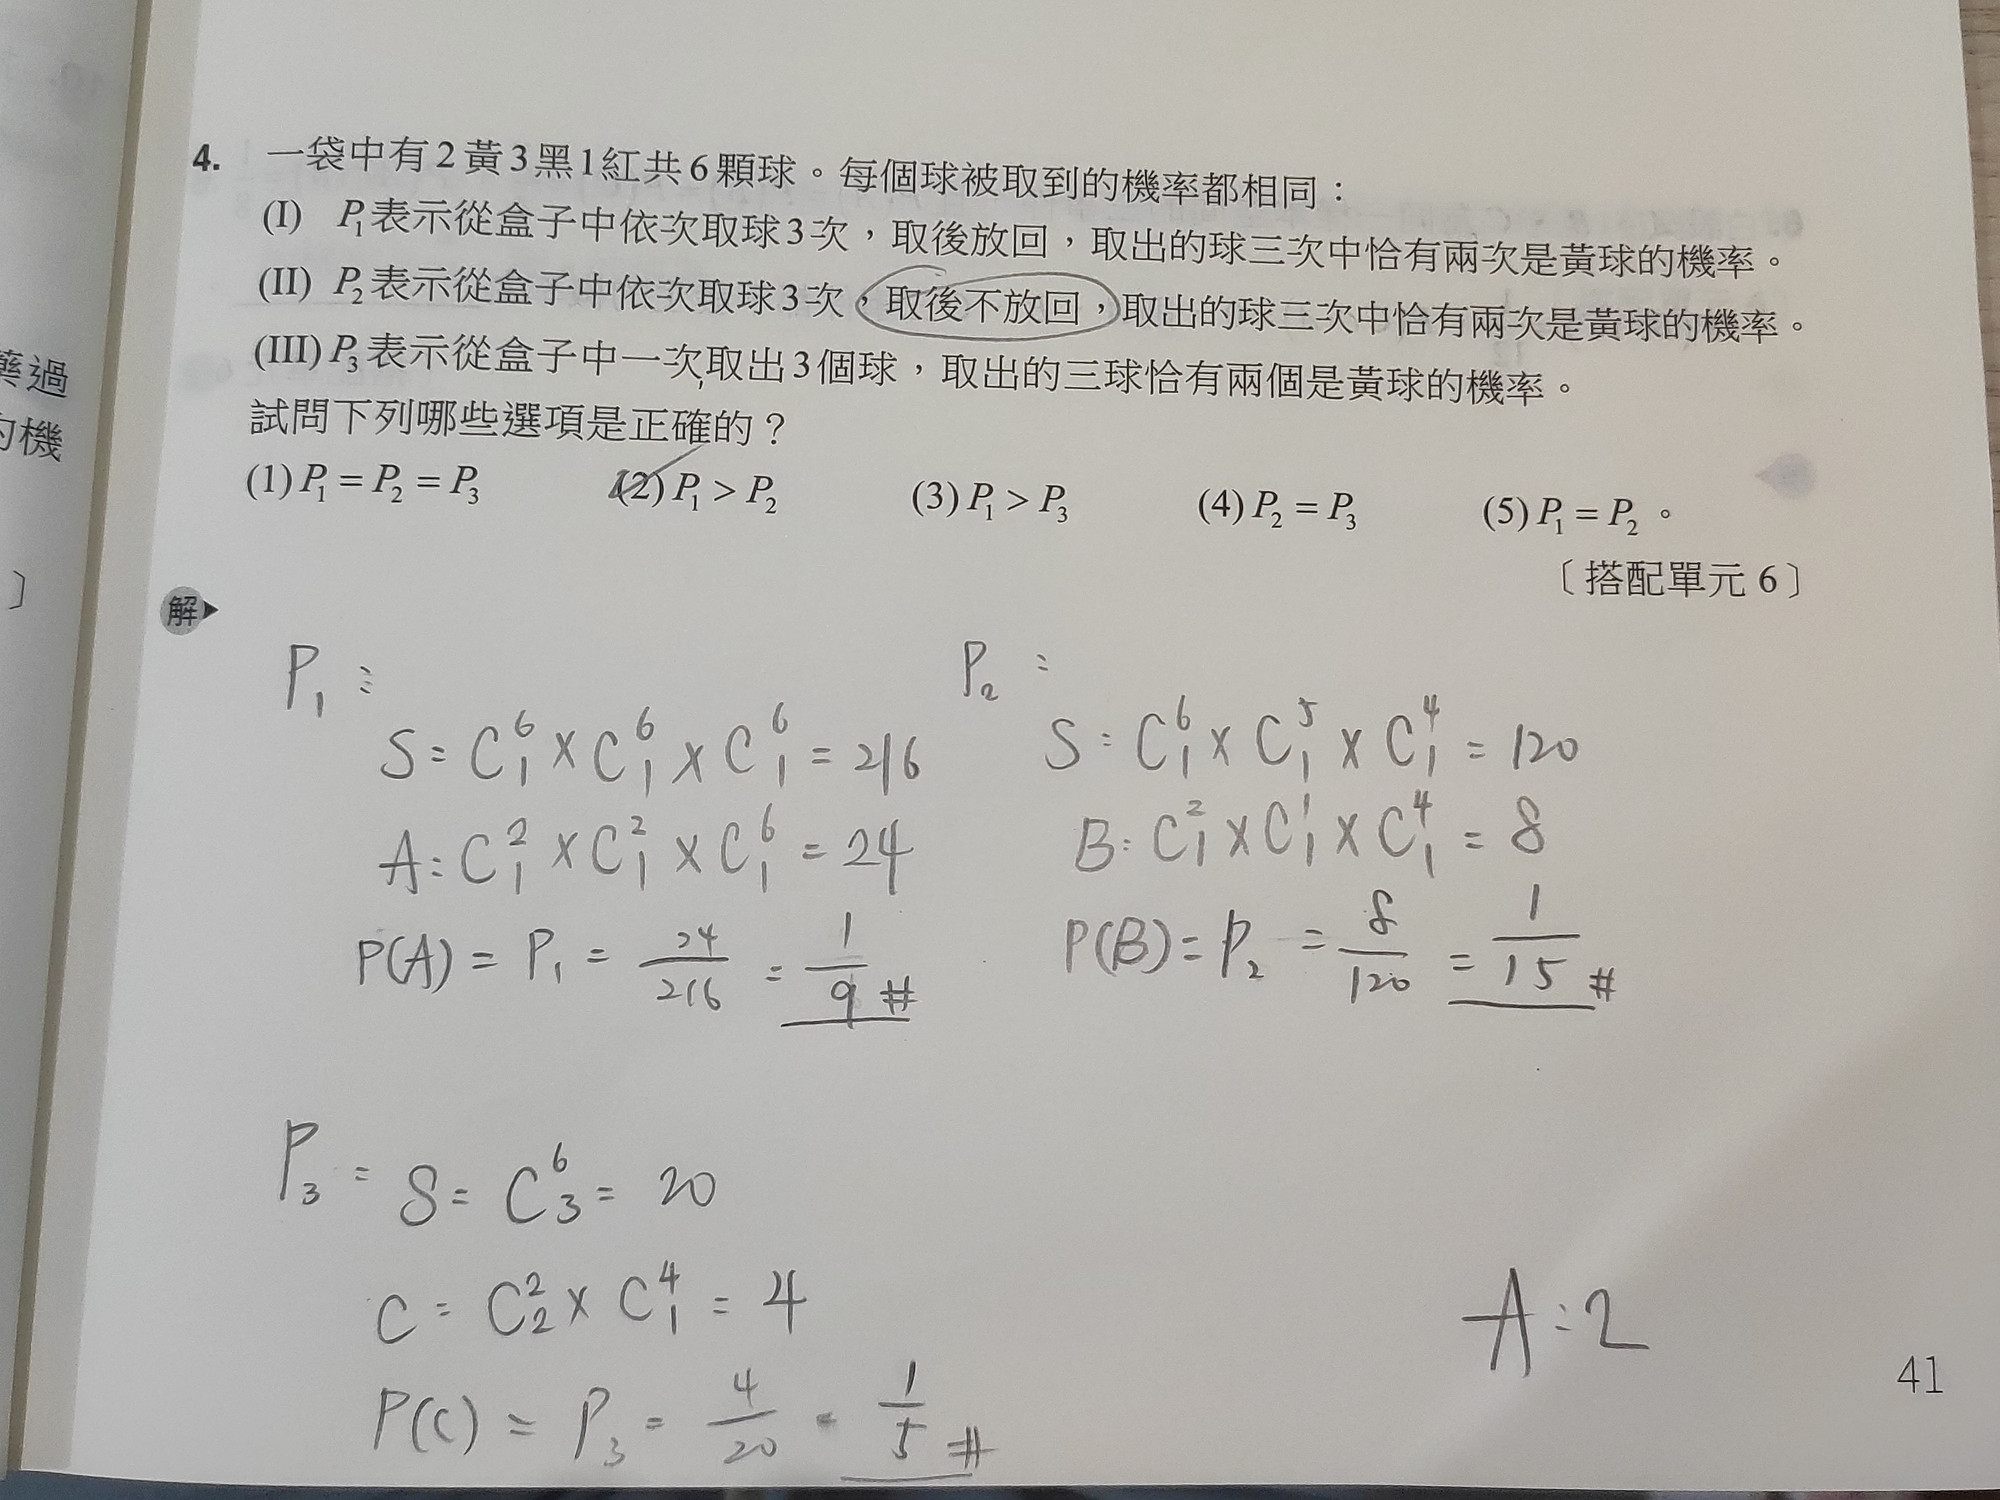 4. 一袋中有2黃3黑1紅共6顆球。每個球被取到的機率都相同：
(I) P₁表示從盒子中依次取球3次，取後放回，取出的球三次中恰有兩次是黃球的機率。
(II) P₂表示從盒子中依次取球3次，取後不放回，取出的球三次中恰有兩次是黃球的機率。
(III) P₃表示從盒子中一次取出3個球，取出的三球恰有兩個是黃球的機率。
藥過
試問下列哪些選項是正確的？
的機
(1) P₁ = P₂ = P₃ (2) P₁ > P₂ (3) P₁ > P₃ (4) P₂ = P₃ (5) P₁ = P₂。
〔搭配單元 6〕
〕
解
P₁：
S = C⁶₁ × C⁶₁ × C⁶₁ = 216
A: C²₁ × C²₁ × C⁶₁ = 24
P(A) = P₁ = 24/216 = 1/9 #
P₂：
S: C⁶₁ × C⁵₁ × C⁴₁ = 120
B: C²₁ × C¹₁ × C⁴₁ = 8
P(B) = P₂ = 8/120 = 1/15 #
P₃ = S = C⁶₃ = 20
C = C²₂ × C⁴₁ = 4
P(C) = P₃ = 4/20 = 1/5 #
A:2
41